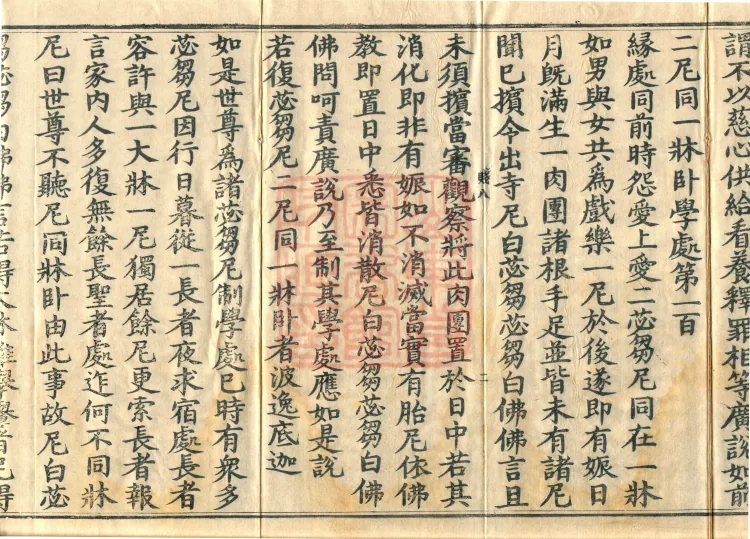 謂不以慈心供給看養釋罪相等廣說如前
二尼同一牀臥學處第一百
緣處同前時怨愛上愛二苾芻尼同在一牀
如男與女共爲戲樂一尼於後遂即有娠日
月旣滿生一肉團諸根手足並皆未有諸尼
聞已擯令出寺尼白苾芻苾芻白佛佛言且
未須擯當審觀察將此肉團置於日中若其
消化即非有娠如不消滅當實有胎尼依佛
教即置日中悉皆消散尼白苾芻苾芻白佛
佛問呵責廣說乃至制其學處應如是說
若復苾芻尼二尼同一牀臥者波逸底迦
如是世尊爲諸苾芻尼制學處已時有衆多
苾芻尼因行日暮從一長者夜求宿處長者
容許與一大牀一尼獨居餘尼更索長者報
言家內人多復無餘長聖者處迮何不同牀
尼曰世尊不聽尼同牀臥由此事故尼白苾